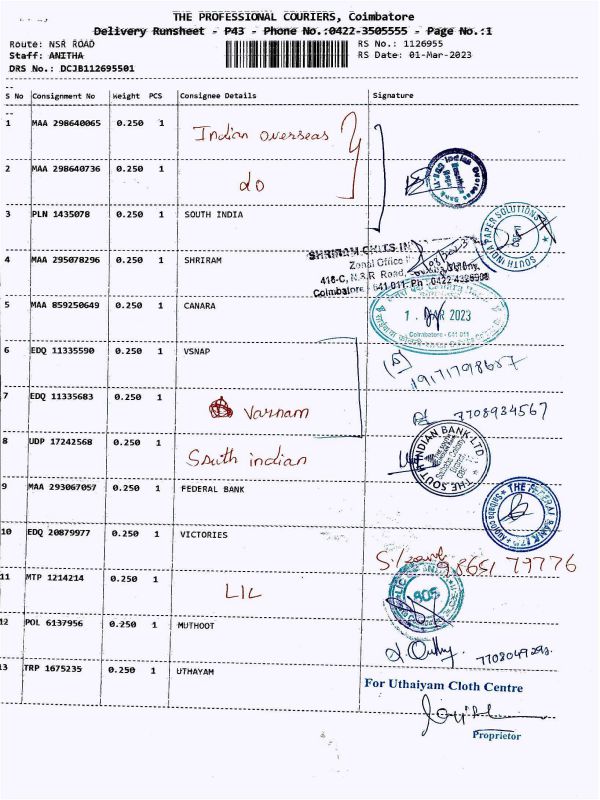 THE PROFESSIONAL COURIERS, Coimbatore
Delivery Runsheet - P43 - Phone No.:0422-3505555 - Page No.:1
Route: NSR ROAD
RS No.: 1126955
Staff: ANITHA
RS Date: 01-Mar-2023
DRS No.: DCJB112695501
S No Consignment No Weight PCS Consignee Details Signature
1 MAA 298640065 0.250 1 Indian overseas
2 MAA 298640736 0.250 1 do
3 PLN 1435078 0.250 1 SOUTH INDIA
SOUTH INDIA PAPER SOLUTIONS
4 MAA 295078296 0.250 1 SHRIRAM
SHRIRAM CHITS
Zonal Office
416-C, N.S.R. Road,
Coimbatore - 641 011. Ph : 0422-4326909
5 MAA 859250649 0.250 1 CANARA
1 MAR 2023
Coimbatore - 641 011
6 EDQ 11335590 0.250 1 VSNAP
7 EDQ 11335683 0.250 1 Varnam
7708934567
8 UDP 17242568 0.250 1 South indian
THE SOUTH INDIAN BANK LTD
9 MAA 293067057 0.250 1 FEDERAL BANK
THE FEDERAL BANK LTD
10 EDQ 20879977 0.250 1 VICTORIES
98651 79776
11 MTP 1214214 0.250 1 LIC
LIC
805
12 POL 6137956 0.250 1 MUTHOOT
13 TRP 1675235 0.250 1 UTHAYAM
For Uthaiyam Cloth Centre
Proprietor